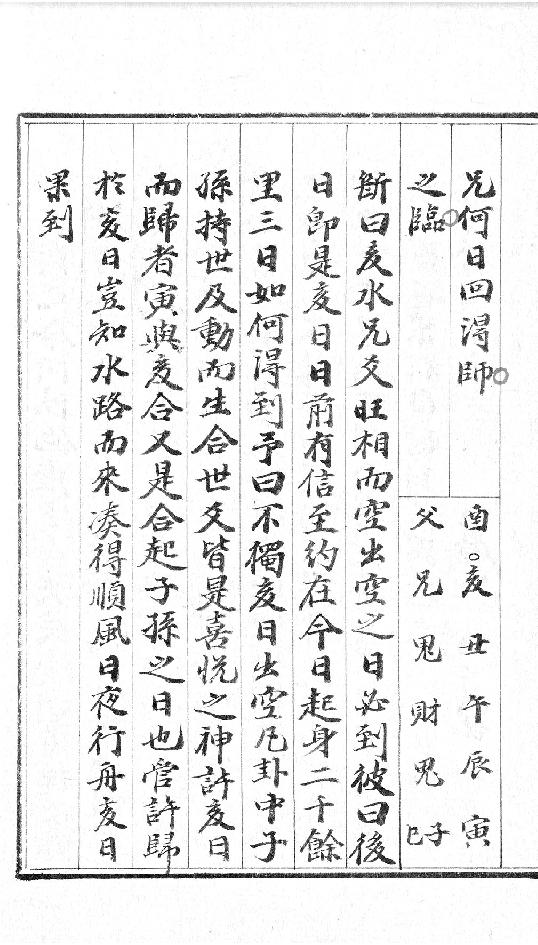 兄何日回得師
之臨
酉○亥丑午辰寅
父兄鬼財鬼子
巳
斷曰亥水兄爻旺相而空出空之日必到彼曰後
日即是亥日日前有信至約在今日起身二千餘
里三日如何得到予曰不獨亥日出空凡卦中子
孫持世及動而生合世爻皆是喜悅之神許亥日
而歸者寅與亥合又是合起子孫之日也管許歸
於亥日豈知水路而來凑得順風日夜行舟亥日
果到